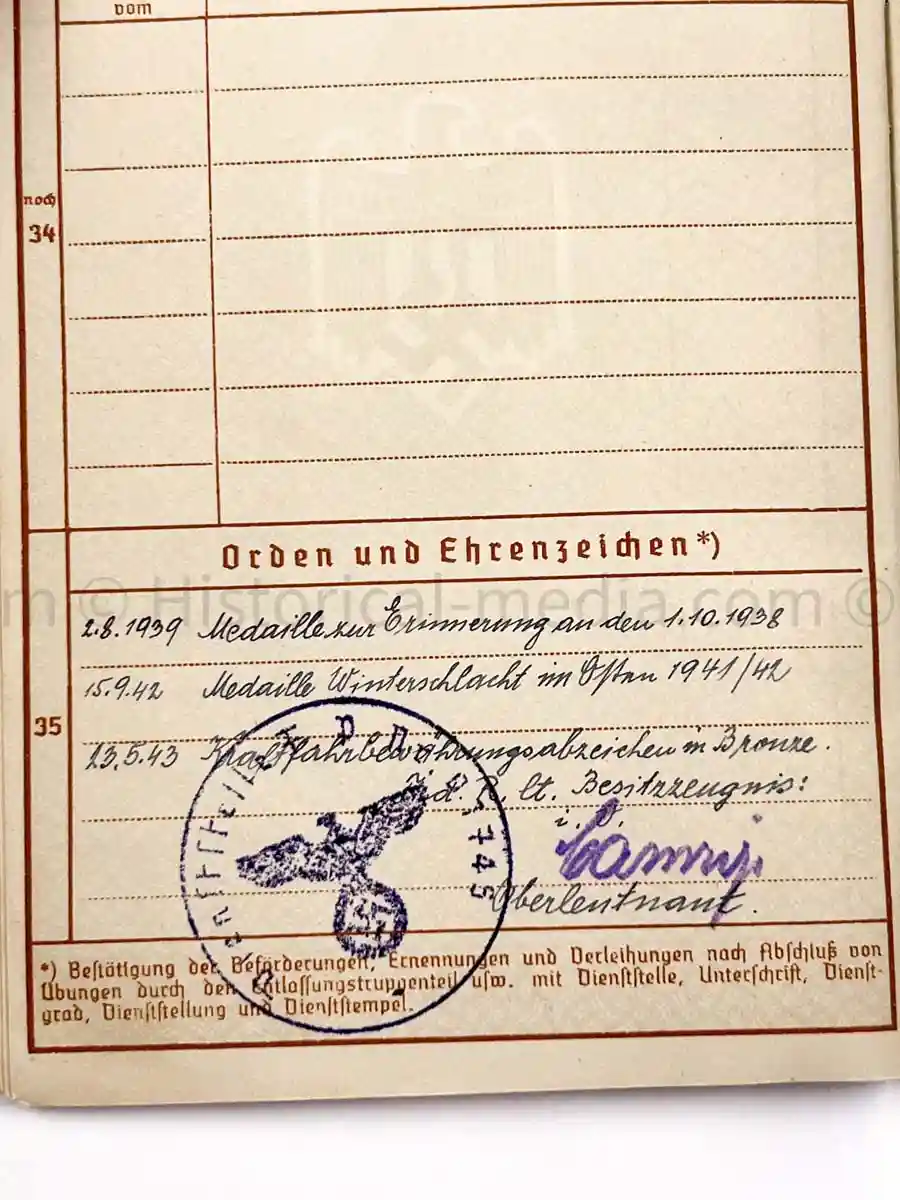 vom
noch
34
Orden und Ehrenzeichen*)
m © Historical-media.com ©
2.8.1939 Medaille zur Erinnerung an den 1.10.1938
15.9.42 Medaille Winterschlacht im Osten 1941/42
35
23.5.43 Kraftfahrbewährungsabzeichen in Bronze.
lt. Besitzzeugnis:
Oberleutnant.
*) Bestätigung der Beförderungen, Ernennungen und Verleihungen nach Abschluß von
Übungen durch den Entlassungstruppenteil usw. mit Dienststelle, Unterschrift, Dienst-
grad, Dienststellung und Dienststempel.